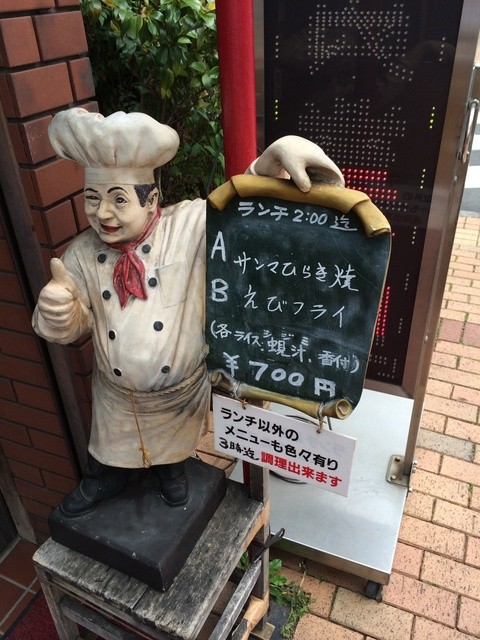 ランチ2:00迄
A サンマひらき焼
B えびフライ
(各ライス、蜆汁、香付)
シジミ
¥700円
ランチ以外の
メニューも色々有り
3時迄 調理出来ます